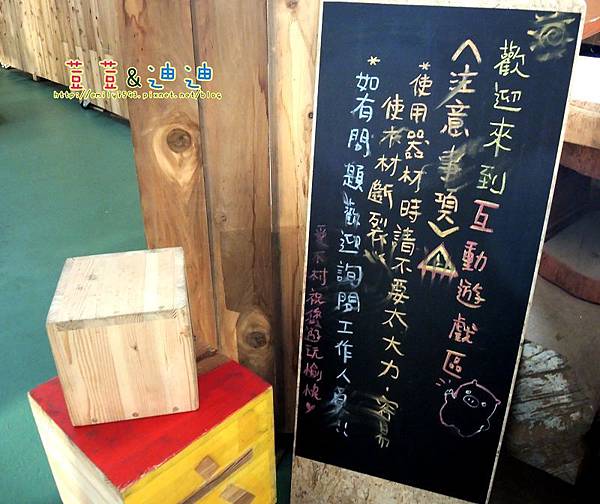 荳荳&迪迪
http://emily1543.pixnet.net/blog
歡迎來到互動遊戲區
<注意事項>
*使用器材時請不要太大力,容易
使木材斷裂!!
*如有問題歡迎詢問工作人員!!
愛木村祝您遊玩愉快♥